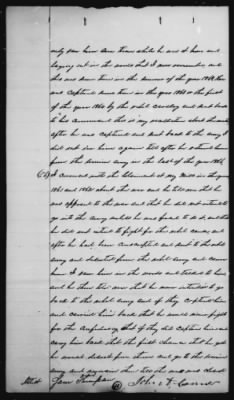 only saw him one time while he and I were out
laying out in the woods that I now remember and
this was some time in the summer of the year 1862. He
was captured some time in the year 1863 or the first
of the year 1864 by the rebel cavalry and sent back
to his command this is my recollection about the matter
after he was captured and sent back to the army I
did not see him again till after he returned home
from the army in the last of the year 1864
I conversed with the claimant at my house in the year
1861 and 1862 about the war and he told me that he
was opposed to the war and that he did not intend to
go into the army unless he was forced to do it, and that
he did not intend to fight for the rebel cause, and
after he had been conscripted and sent to the rebel
army and deserted from the rebel army and came
home I saw him in the woods and talked to him
and he then told me that he never intended to go
back to the rebel army and if they captured him
and carried him back that he would never fight
for the Confederacy that if they did capture him and
carry him back that the first chance that he got
he would desert from them and go to the
army and
Attest
John